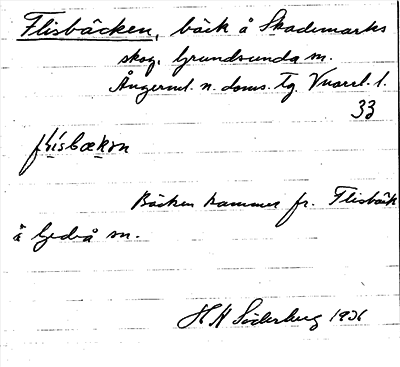 Flisbäcken, bäck å Skademarks
skog, Grundsunda sn.
Ångerml. n. doms. Tg.
33
Bäcken kommer fr. Flisbäck
å Gideå sn.
H H Söderberg 1936